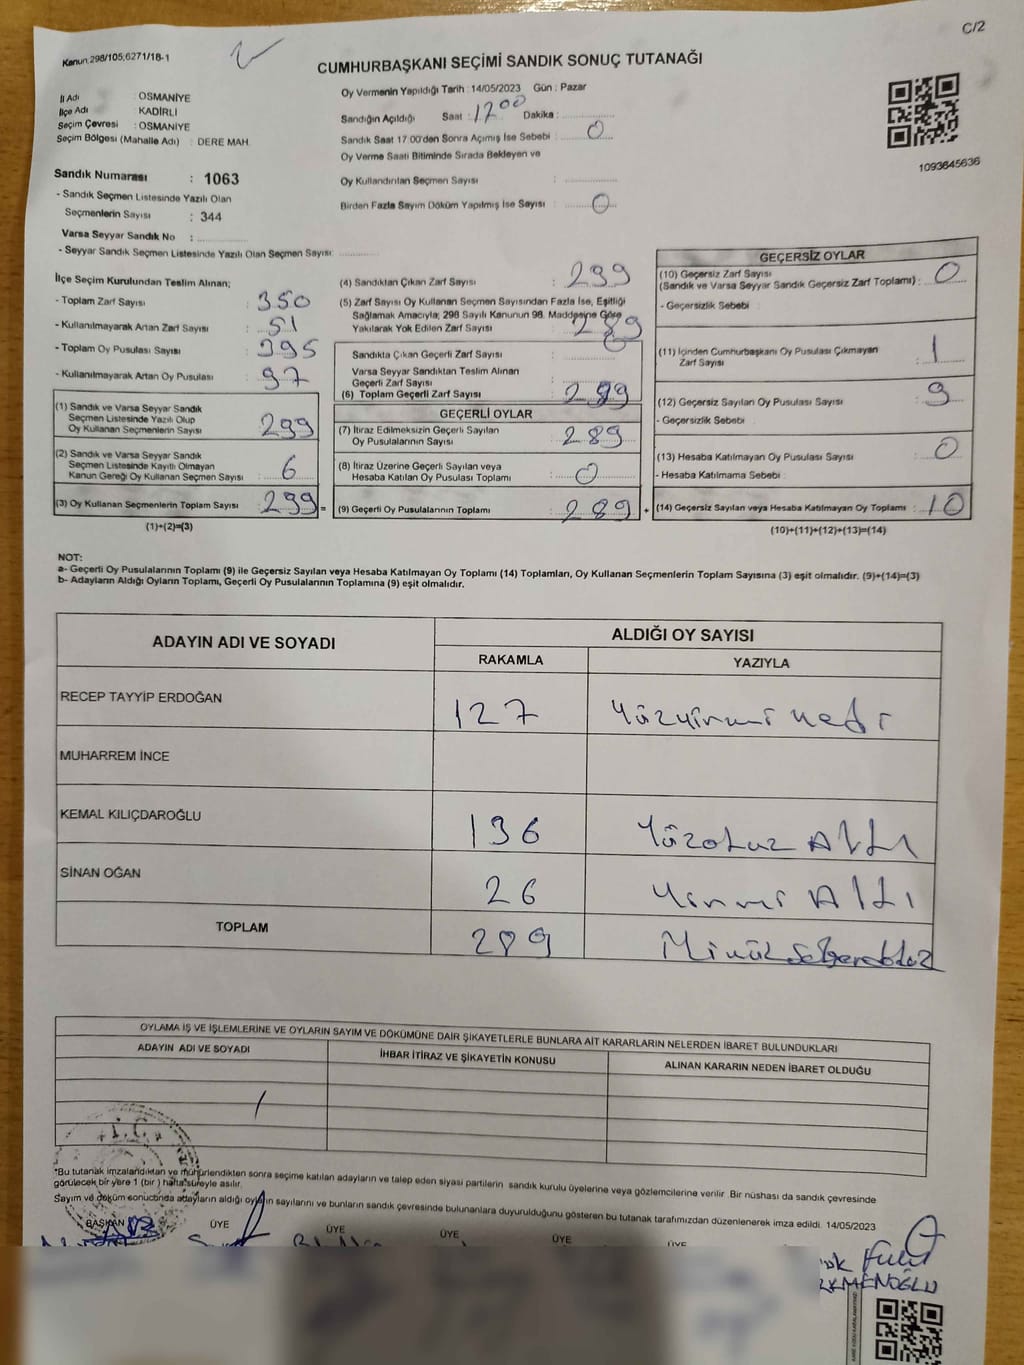 C/2
Kanun:298/105;6271/18-1
CUMHURBAŞKANI SEÇİMİ SANDIK SONUÇ TUTANAĞI
İl Adı : OSMANİYE
İlçe Adı : KADİRLİ
Seçim Çevresi : OSMANİYE
Seçim Bölgesi (Mahalle Adı) : DERE MAH.
Oy Vermenin Yapıldığı Tarih : 14/05/2023 Gün : Pazar
Sandığın Açıldığı Saat : 1700 Dakika :
Sandık Saat 17.00'den Sonra Açılmış İse Sebebi : 0
Oy Verme Saati Bitiminde Sırada Bekleyen ve
Oy Kullandırılan Seçmen Sayısı :
Birden Fazla Sayım Döküm Yapılmış İse Sayısı : 0
1093645636
Sandık Numarası : 1063
- Sandık Seçmen Listesinde Yazılı Olan
Seçmenlerin Sayısı : 344
Varsa Seyyar Sandık No :
- Seyyar Sandık Seçmen Listesinde Yazılı Olan Seçmen Sayısı:
İlçe Seçim Kurulundan Teslim Alınan;
- Toplam Zarf Sayısı : 350
- Kullanılmayarak Artan Zarf Sayısı : 51
- Toplam Oy Pusulası Sayısı : 395
- Kullanılmayarak Artan Oy Pusulası : 97
(1) Sandık ve Varsa Seyyar Sandık
Seçmen Listesinde Yazılı Olup
Oy Kullanan Seçmenlerin Sayısı : 299
(2) Sandık ve Varsa Seyyar Sandık
Seçmen Listesinde Kayıtlı Olmayan
Kanun Gereği Oy Kullanan Seçmen Sayısı : 6
(3) Oy Kullanan Seçmenlerin Toplam Sayısı : 299 =
(1)+(2)=(3)
(4) Sandıktan Çıkan Zarf Sayısı : 299
(5) Zarf Sayısı Oy Kullanan Seçmen Sayısından Fazla İse, Eşitliği
Sağlamak Amacıyla; 298 Sayılı Kanunun 98. Maddesine Göre
Yakılarak Yok Edilen Zarf Sayısı : 289
Sandıkta Çıkan Geçerli Zarf Sayısı :
Varsa Seyyar Sandıktan Teslim Alınan
Geçerli Zarf Sayısı :
(6) Toplam Geçerli Zarf Sayısı : 289
GEÇERLİ OYLAR
(7) İtiraz Edilmeksizin Geçerli Sayılan
Oy Pusulalarının Sayısı : 289
(8) İtiraz Üzerine Geçerli Sayılan veya
Hesaba Katılan Oy Pusulası Toplamı : 0
(9) Geçerli Oy Pusulalarının Toplamı : 289 +
GEÇERSİZ OYLAR
(10) Geçersiz Zarf Sayısı
(Sandık ve Varsa Seyyar Sandık Geçersiz Zarf Toplamı) : 0
- Geçersizlik Sebebi
(11) İçinden Cumhurbaşkanı Oy Pusulası Çıkmayan
Zarf Sayısı : 1
(12) Geçersiz Sayılan Oy Pusulası Sayısı : 9
- Geçersizlik Sebebi
(13) Hesaba Katılmayan Oy Pusulası Sayısı : 0
- Hesaba Katılmama Sebebi :
(14) Geçersiz Sayılan veya Hesaba Katılmayan Oy Toplamı : 10
(10)+(11)+(12)+(13)=(14)
NOT:
a- Geçerli Oy Pusulalarının Toplamı (9) ile Geçersiz Sayılan veya Hesaba Katılmayan Oy Toplamı (14) Toplamları, Oy Kullanan Seçmenlerin Toplam Sayısına (3) eşit olmalıdır. (9)+(14)=(3)
b- Adayların Aldığı Oyların Toplamı, Geçerli Oy Pusulalarının Toplamına (9) eşit olmalıdır.
ADAYIN ADI VE SOYADI ALDIĞI OY SAYISI
RAKAMLA YAZIYLA
RECEP TAYYİP ERDOĞAN 127 Yüzyirmi Yedi
MUHARREM İNCE
KEMAL KILIÇDAROĞLU 136 Yüzotuz Altı
SİNAN OĞAN 26 Yirmi Altı
TOPLAM 289
OYLAMA İŞ VE İŞLEMLERİNE VE OYLARIN SAYIM VE DÖKÜMÜNE DAİR ŞİKAYETLERLE BUNLARA AİT KARARLARIN NELERDEN İBARET BULUNDUKLARI
ADAYIN ADI VE SOYADI İHBAR İTİRAZ VE ŞİKAYETİN KONUSU ALINAN KARARIN NEDEN İBARET OLDUĞU
T.C.
*Bu tutanak imzalandıktan ve mühürlendikten sonra seçime katılan adayların ve talep eden siyasi partilerin sandık kurulu üyelerine veya gözlemcilerine verilir. Bir nüshası da sandık çevresinde
görülecek bir yere 1 (bir ) hafta süreyle asılır.
Sayım ve döküm sonucunda adayların aldığı oyların sayılarını ve bunların sandık çevresinde bulunanlara duyurulduğunu gösteren bu tutanak tarafımızdan düzenlenerek imza edildi. 14/05/2023
BAŞKAN ÜYE ÜYE ÜYE ÜYE ÜYE